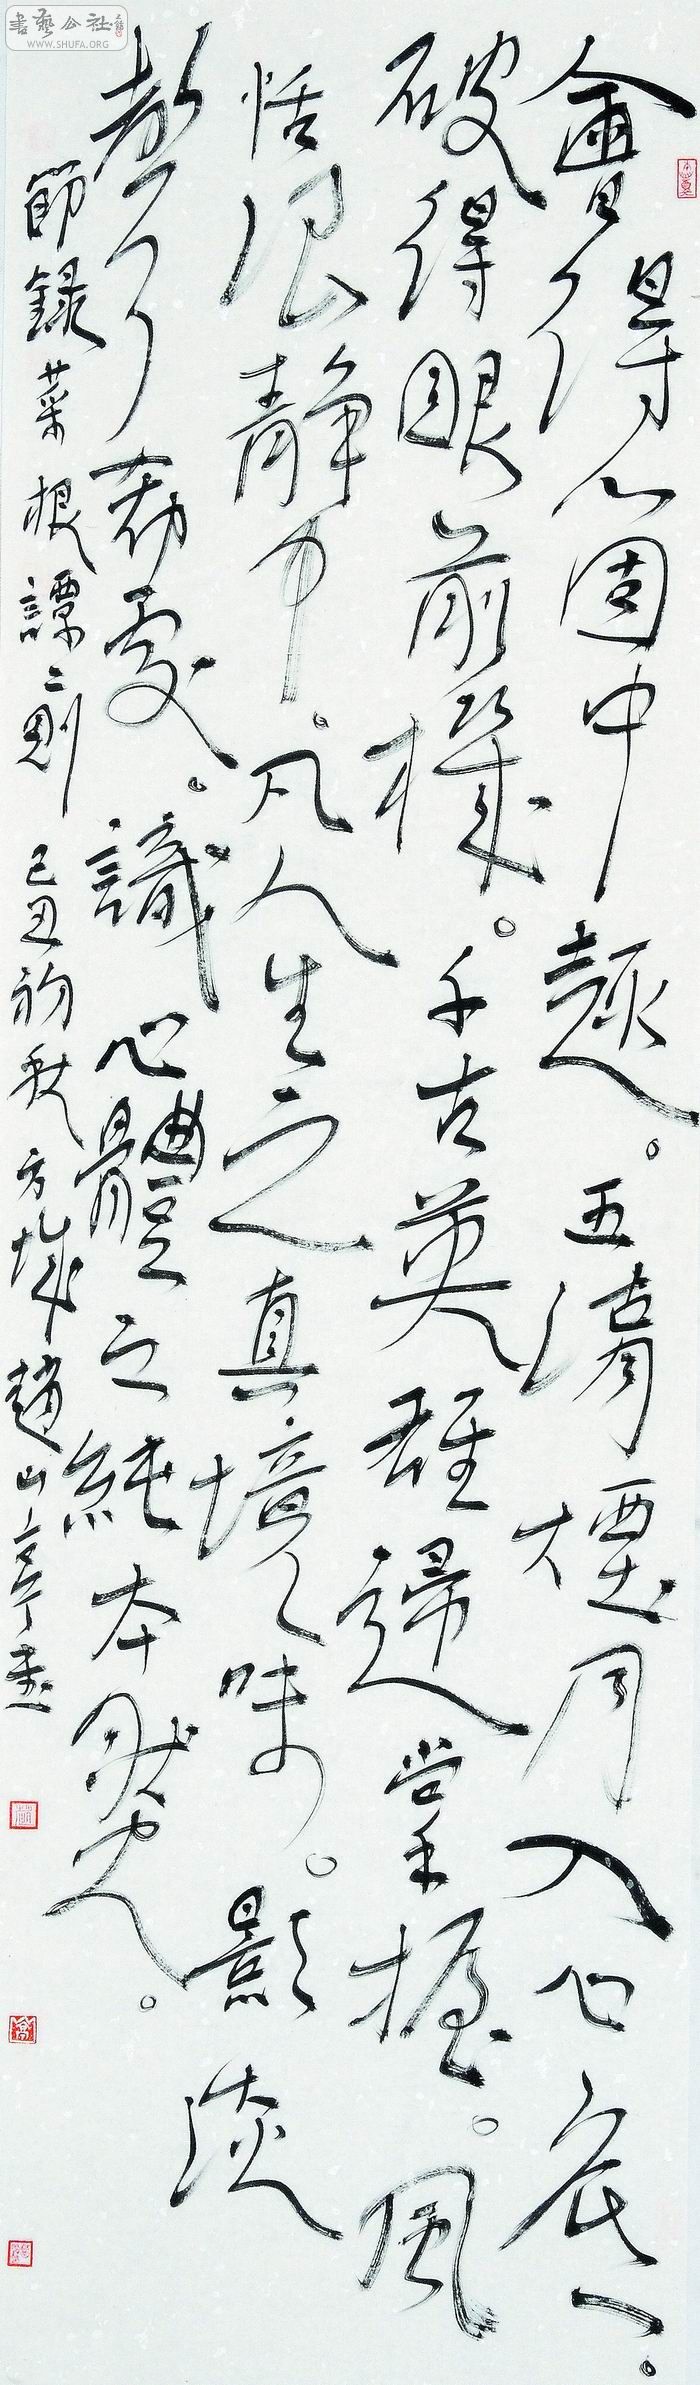 書藝公社
WWW.SHUFA.ORG
會得個中趣。五湖煙月入心底。
破得眼前機。千古英雄歸掌握。風
恬浪靜中。凡人生之真境之味。影淡
處。識心體之純本然
節錄菜根譚二則 己丑初秋方城趙山亭書